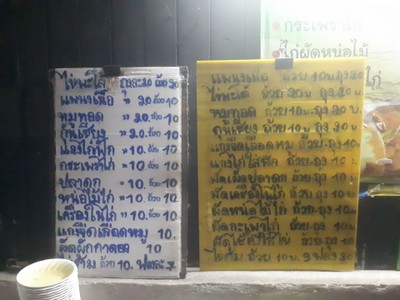 กระเพราไก่
ไก่ผัดหน่อไม้
ไข่พะโล้ ถุงละ20 ถ้วย 20
แพนงเนื้อ " 20 ถ้วย 10
หมูทอด " 20 ถ้วย 10
กุนเชียง " 20 ถ้วย 10
แกงไก่ฟัก " 10 ถ้วย 10
กระเพราไก่ " 10 ถ้วย 10
ปลาดุก " 10 ถ้วย 10
หน่อไม้ไก่ " 10 ถ้วย 10
เครื่องในไก่ " 10 ถ้วย 10
แกงจืดเลือดหมู 10
ผัดผักกาดดอง 10
ถ้วย 10
แพนงเนื้อ ถ้วย 10 บ ถุง 20
ไข่พะโล้ ถ้วย 20 บ ถุง 20 บ
หมูทอด ถ้วย 10 บ ถุง 20 บ
กุนเชียง ถ้วย 10 บ ถุง 20 บ
แกงจืดเลือดหมู ถ้วย-ถุง 10 บ
แกงไก่ใส่ฟัก ถ้วย-ถุง 10 บ
ผัดเผ็ดปลาดุก ถ้วย-ถุง 10 บ
ผัดเครื่องในไก่ ถ้วย-ถุง 10 บ
ผัดหน่อไม้ไก่ ถ้วย-ถุง 10 บ
ผัดกะเพราไก่ ถ้วย-ถุง 10 บ
ถ้วย-ถุง 10
ถ้วย 10 บ